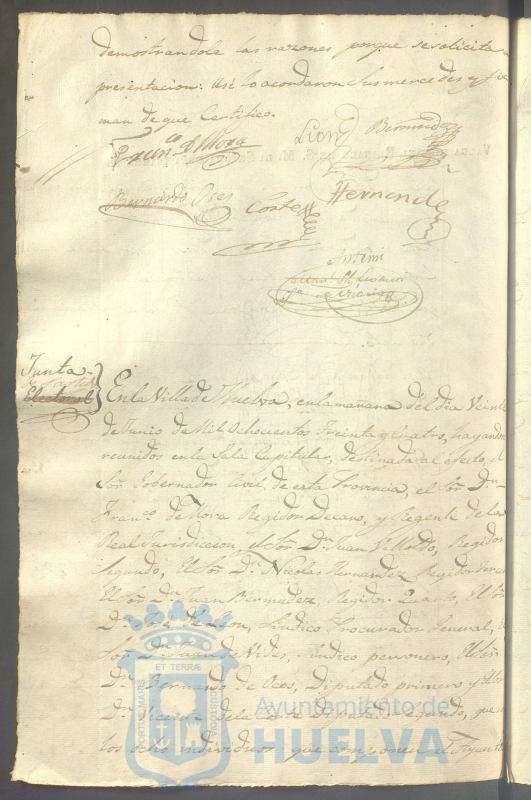 demostrandole las razones porque se solicita
presentacion: Así lo acordaron Sus mercedes y fir
man de que Certifico.
Franco. de Mora
Leon
Bermudez
Bernardo Oces
Cortes
Hernandez
Antimi
Junta
Electoral
En la Villa de Huelva, en la mañana del dia Veinte
de Junio de Mil Ochocientos Treinta y Cuatro, hayandose
reunidos en la Sala Capitular, destinada al efecto, el
Sor. Gobernador Civil de esta Provincia, el Sor. Dn.
Franco. de Mora Regidor Decano, y Regente de la
Real Jurisdiccion, el Sor. Dn. Juan de Regidor
Segundo, El Sor. Dn. Nicolas Hernandez Regidor
El Sor. Dn. Juan Bermudez, Regidor Cuarto, El Sor.
Dn. José de Leon, Sindico Procurador General,
Sor. Dn. Juan de Vides, Sindico personero, El Sor.
Dn. Bernardo de Oces, Diputado primero y
Dn. Vicente de la Corte Diputado Segundo, que
los ocho individuos que componen el Ayunta
PORTUS MARIS
ET TERRÆ
CUSTODIA
Ayuntamiento de
HUELVA